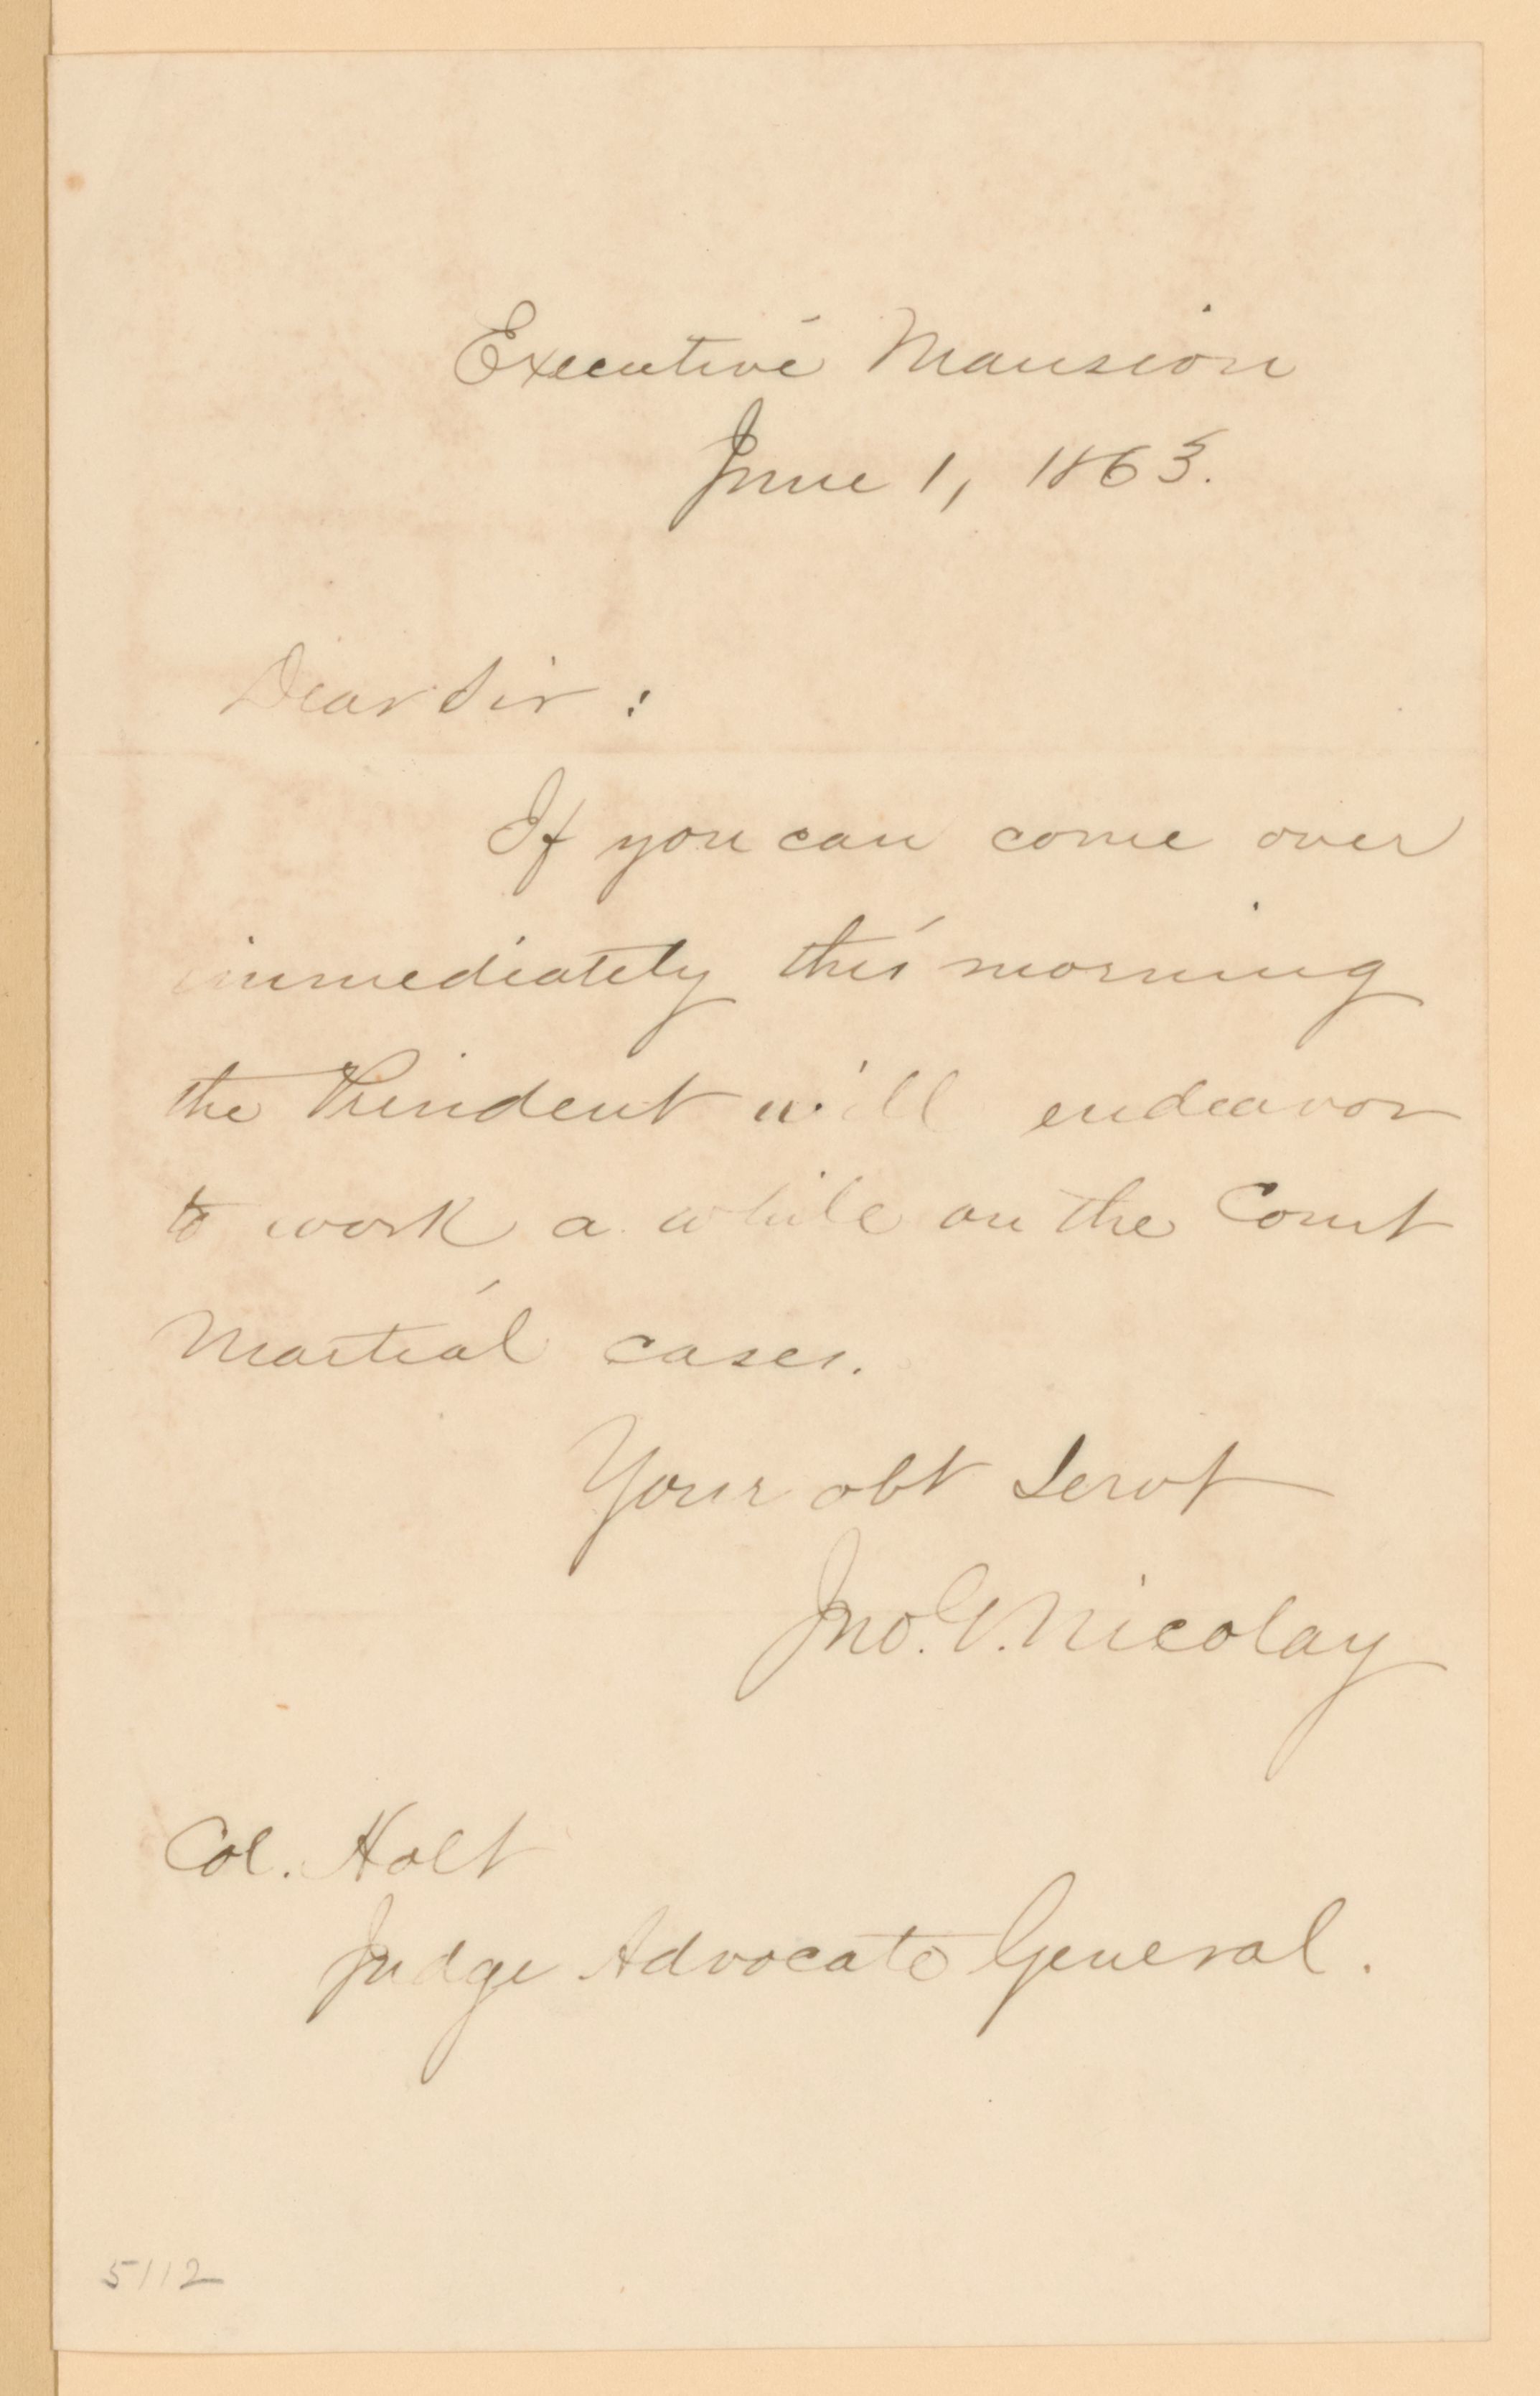 Executive Mansion
June 1, 1863.
Dear Sir :
If you can come over
immediately this morning
the President will endeavor
to work a while on the Court
Martial cases.
Your obt Servt
Jno. G. Nicolay
Col. Holt
Judge Advocate General.
5112